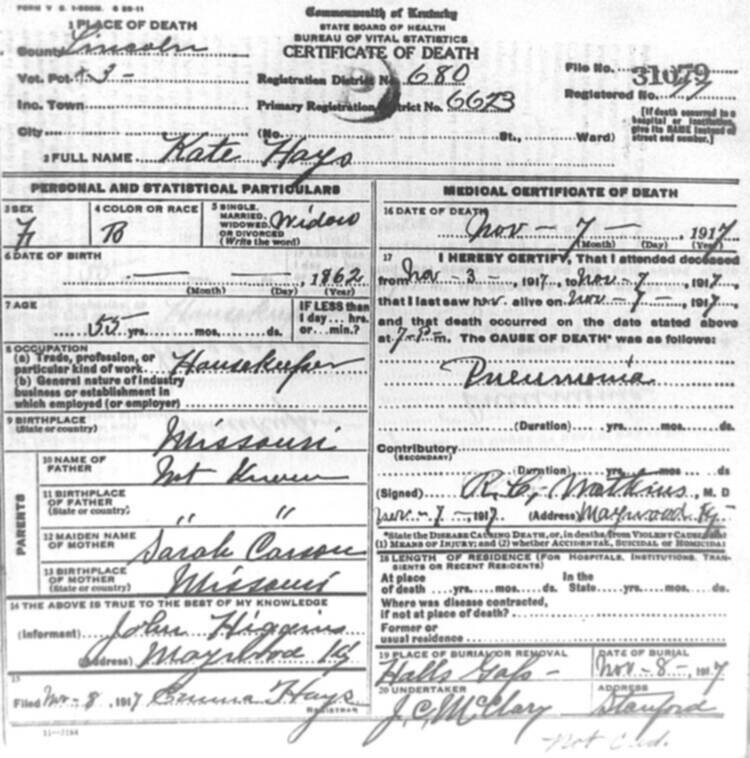 FORM V S. 1-500M. 8 25-11
Commonwealth of Kentucky
STATE BOARD OF HEALTH
BUREAU OF VITAL STATISTICS
CERTIFICATE OF DEATH
1 PLACE OF DEATH
County Lincoln
Vot. Pct # 3 -
Inc. Town
City (No. St., Ward)
Registration District No. 680
Primary Registration District No. 6623
File No. 31079
Registered No. 77
[If death occurred in a
hospital or institution,
give its NAME instead of
street and number.]
2 FULL NAME Kate Hays
PERSONAL AND STATISTICAL PARTICULARS
3 SEX F
4 COLOR OR RACE B
5 SINGLE,
MARRIED,
WIDOWED,
OR DIVORCED
(Write the word)
Widow
6 DATE OF BIRTH
— — , 1862
(Month) (Day) (Year)
7 AGE
55 yrs. mos. ds.
IF LESS than
1 day ... hrs.
or ... min.?
8 OCCUPATION
(a) Trade, profession, or
particular kind of work Housekeeper
(b) General nature of industry
business or establishment in
which employed (or employer)
9 BIRTHPLACE
(State or country)
Missouri
PARENTS
10 NAME OF
FATHER
Not Known
11 BIRTHPLACE
OF FATHER
(State or country)
" "
12 MAIDEN NAME
OF MOTHER
Sarah Carson
13 BIRTHPLACE
OF MOTHER
(State or country)
Missouri
14 THE ABOVE IS TRUE TO THE BEST OF MY KNOWLEDGE
(Informant) John Higgins
(Address) Maywood Ky
15
Filed Nov - 8, 1917 Emma Hays
REGISTRAR
11-3184
MEDICAL CERTIFICATE OF DEATH
16 DATE OF DEATH
Nov - 7 - , 1917
(Month) (Day) (Year)
17 I HEREBY CERTIFY, That I attended deceased
from Nov - 3 , 1917, to Nov - 7 , 1917,
that I last saw her alive on Nov - 7 - , 1917
and that death occurred on the date stated above
at 7 P m. The CAUSE OF DEATH* was as follows:
Pneumonia
(Duration) yrs. mos. ds.
Contributory
(SECONDARY)
(Duration) yrs. mos ds
(Signed) R. C. Watkins, M. D
Nov - 7 - 1917 (Address) Maywood Ky -
*State the DISEASE CAUSING DEATH, or, in deaths from VIOLENT CAUSES state
(1) MEANS OF INJURY; and (2) whether ACCIDENTAL, SUICIDAL or HOMICIDAL
18 LENGTH OF RESIDENCE (FOR HOSPITALS, INSTITUTIONS, TRAN-
SIENTS OR RECENT RESIDENTS)
At place In the
of death yrs. mos. ds. State yrs. mos. ds.
Where was disease contracted,
if not at place of death?
Former or
usual residence
19 PLACE OF BURIAL OR REMOVAL
Halls Gap -
DATE OF BURIAL
Nov - 8 - , 1917
20 UNDERTAKER
J. C. McClary
ADDRESS
Stanford